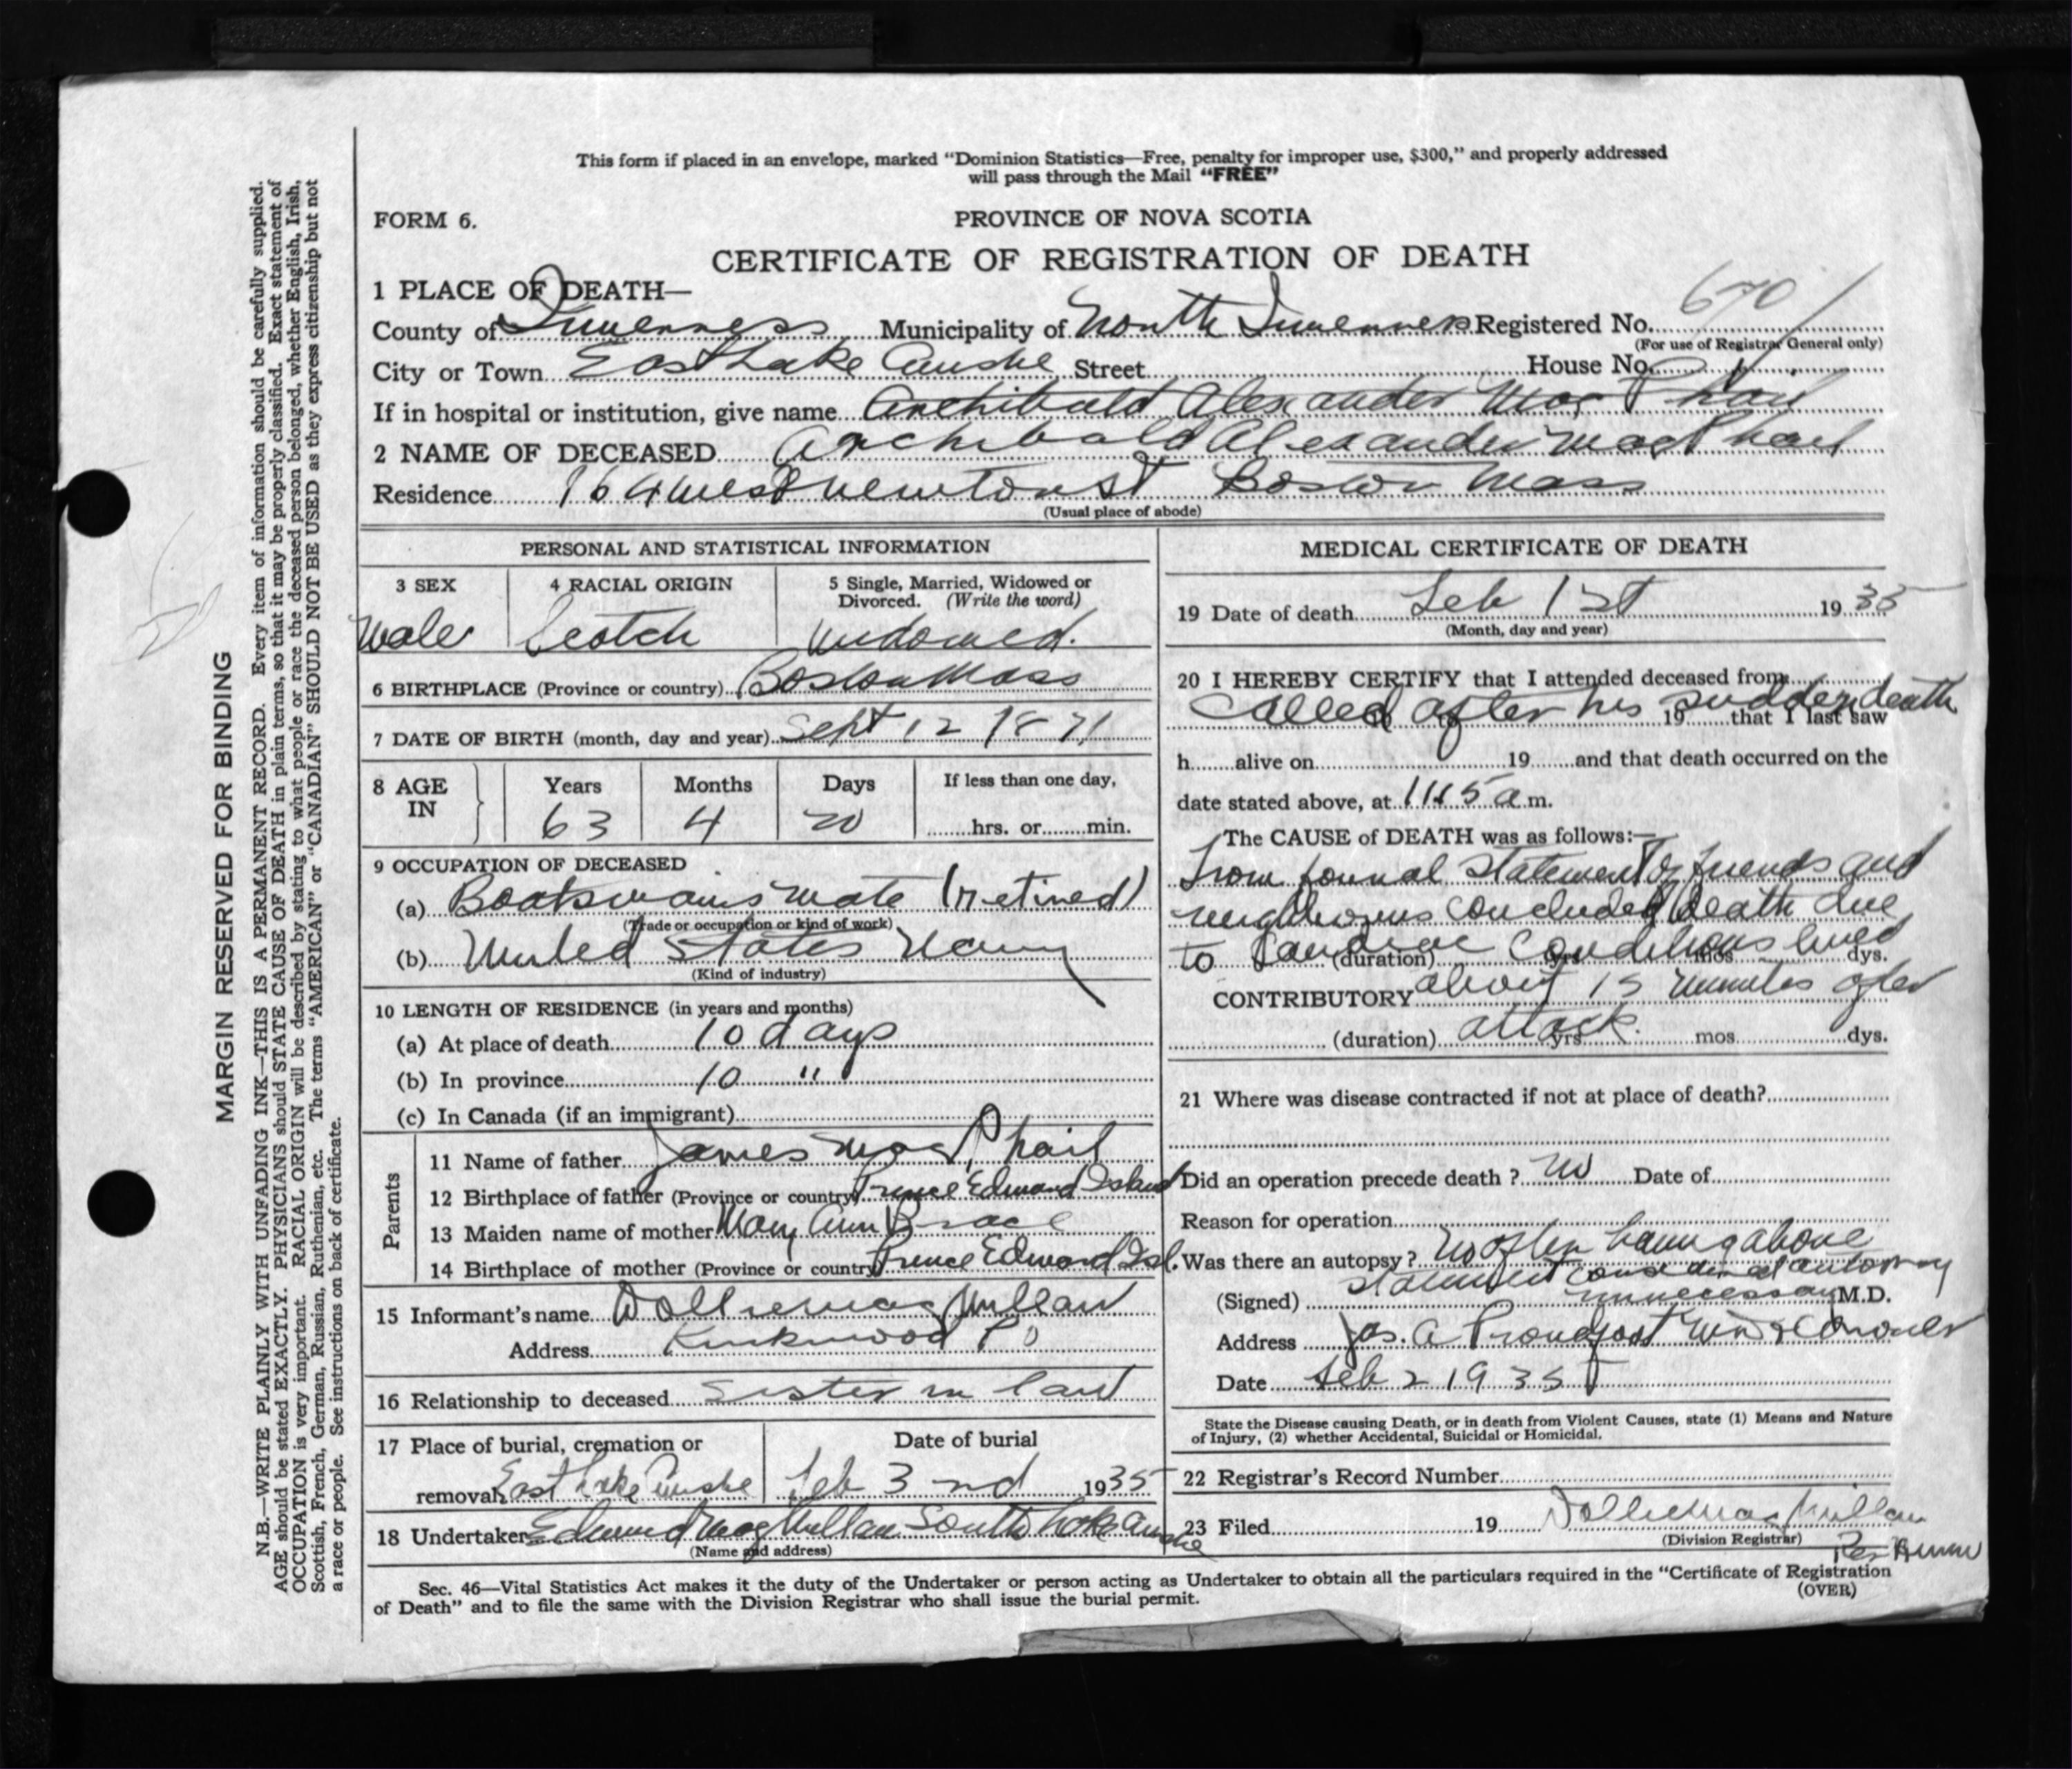 This form if placed in an envelope, marked “Dominion Statistics—Free, penalty for improper use, $300,” and properly addressed
will pass through the Mail “FREE”
FORM 6.
PROVINCE OF NOVA SCOTIA
CERTIFICATE OF REGISTRATION OF DEATH
1 PLACE OF DEATH—
County of Inverness Municipality of North Inverness Registered No. 670
(For use of Registrar General only)
City or Town East Lake Ainslie Street House No.
If in hospital or institution, give name Archibald Alexander MacPhail
2 NAME OF DECEASED Archibald Alexander MacPhail
Residence 164 West Newton St Boston Mass
(Usual place of abode)
PERSONAL AND STATISTICAL INFORMATION
3 SEX
Male
4 RACIAL ORIGIN
Scotch
5 Single, Married, Widowed or
Divorced. (Write the word)
Widowed.
6 BIRTHPLACE (Province or country) Boston Mass
7 DATE OF BIRTH (month, day and year) Sept 12 1871
8 AGE IN
Years 63
Months 4
Days 20
If less than one day,
hrs. or min.
9 OCCUPATION OF DECEASED
(a) Boatswains Mate (retired)
(Trade or occupation or kind of work)
(b) United States Navy
(Kind of industry)
10 LENGTH OF RESIDENCE (in years and months)
(a) At place of death 10 days
(b) In province 10 "
(c) In Canada (if an immigrant)
Parents
11 Name of father James MacPhail
12 Birthplace of father (Province or country) Prince Edward Island
13 Maiden name of mother Mary Ann Brace
14 Birthplace of mother (Province or country) Prince Edward Isl.
15 Informant's name Dollie MacMillan
Address Kirkwood P O
16 Relationship to deceased Sister in law
17 Place of burial, cremation or
removal East Lake Ainslie
Date of burial
Feb 3 nd 1935
18 Undertaker Edmund MacMillan South Lake Ainslie
(Name and address)
MEDICAL CERTIFICATE OF DEATH
19 Date of death Feb 1st 1935
(Month, day and year)
20 I HEREBY CERTIFY that I attended deceased from
Called after his sudden death
to 19 that I last saw
h alive on 19 and that death occurred on the
date stated above, at 1145 a m.
The CAUSE of DEATH was as follows:—
From formal statement of friends and
neighbours concluded death due
to Cardiac Conditions lived
(duration) yrs mos dys.
CONTRIBUTORY about 15 minutes after
(duration) attack. yrs mos dys.
21 Where was disease contracted if not at place of death?
Did an operation precede death? no Date of
Reason for operation
Was there an autopsy? No after having above
statement considered autopsy
unnecessary
(Signed) M.D.
Address Jas. A Proudfoot MD & Coroner
Date Feb 2 1935
State the Disease causing Death, or in death from Violent Causes, state (1) Means and Nature
of Injury, (2) whether Accidental, Suicidal or Homicidal.
22 Registrar's Record Number
23 Filed 19 Dollie MacMillan
(Division Registrar)
Sec. 46—Vital Statistics Act makes it the duty of the Undertaker or person acting as Undertaker to obtain all the particulars required in the “Certificate of Registration
of Death” and to file the same with the Division Registrar who shall issue the burial permit.
(OVER)
MARGIN RESERVED FOR BINDING
N.B.—WRITE PLAINLY WITH UNFADING INK—THIS IS A PERMANENT RECORD. Every item of information should be carefully supplied.
AGE should be stated EXACTLY. PHYSICIANS should STATE CAUSE OF DEATH in plain terms, so that it may be properly classified. Exact statement of
OCCUPATION is very important. RACIAL ORIGIN will be described by stating to what people or race the deceased person belonged, whether English, Irish,
Scottish, French, German, Russian, Ruthenian, etc. The terms “AMERICAN” or “CANADIAN” SHOULD NOT BE USED as they express citizenship but not
a race or people. See instructions on back of certificate.